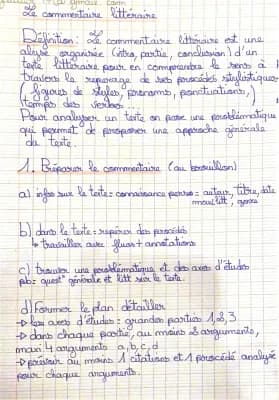 Le commentaire littéraire
Définition: Le commentaire littéraire est une
organisée (intro, partie, conclusion) d'un
texte littéraire pour en comprendre le sens à
travers le reperage de ses procédés stylistiques
(figures de styles, pronoms, ponctuations,
temps des verbes
Pour analyser un texte on pose une problématique
qui permet de proposer une approche générale
du texte.
1. Préparer le commentaire (au brouillon)
a) infos sur le texte: connaissance perso: auteur, titre, date
mouv litt, genre
b) dans le texte: repérer des procédés
↳ travailler avec fluos + annotations
c) trouver une problématique et des axes d'études
pb: quest° générale et litt sur le texte.
d) Former le plan détailler
→ les axes d'études: grandes parties 1, 2, 3
→ dans chaque partie, au moins 2 arguments,
maxi 4 arguments a, b, c, d
→ prévoir au moins 1 citations et 1 procédé analysé
pour chaque arguments.